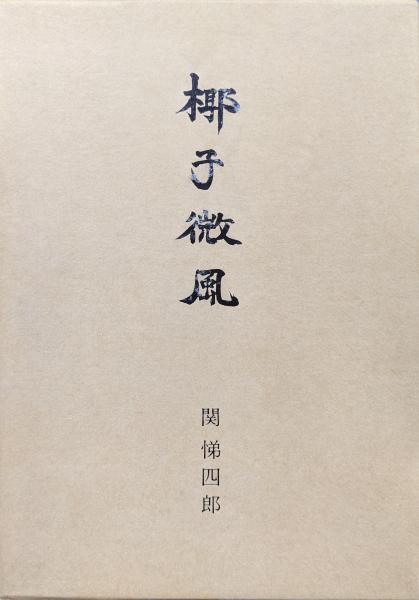 椰子微風
関 悌四郎